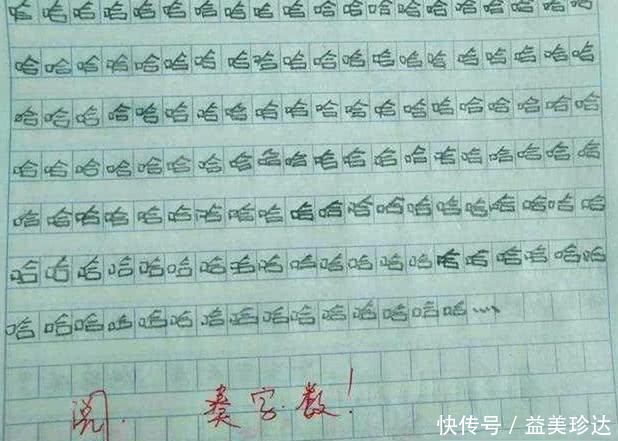 哈哈哈哈哈哈哈哈哈哈哈哈哈哈哈哈哈哈哈哈
哈哈哈哈哈哈哈哈哈哈哈哈哈哈哈哈哈哈哈哈
哈哈哈哈哈哈哈哈哈哈哈哈哈哈哈哈哈哈哈哈
哈哈哈哈哈哈哈哈哈哈哈哈哈哈哈哈哈哈哈哈
哈哈哈哈哈哈哈哈哈哈哈哈哈哈哈哈哈哈哈哈
哈哈哈哈哈哈哈哈哈哈哈哈哈哈哈哈哈哈哈哈
哈哈哈哈哈哈哈哈哈哈哈哈哈哈哈……
字数!
快传号/益美珍达